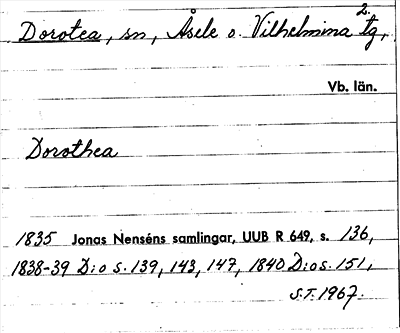 2.
Dorotea, sn, Åsele o. Vilhelmina tg,
Vb. län.
Dorothea
1835 Jonas Nenséns samlingar, UUB R 649, s. 136,
1838-39 D:o s. 139, 143, 147, 1840 D:o s. 151,
S.T. 1967.